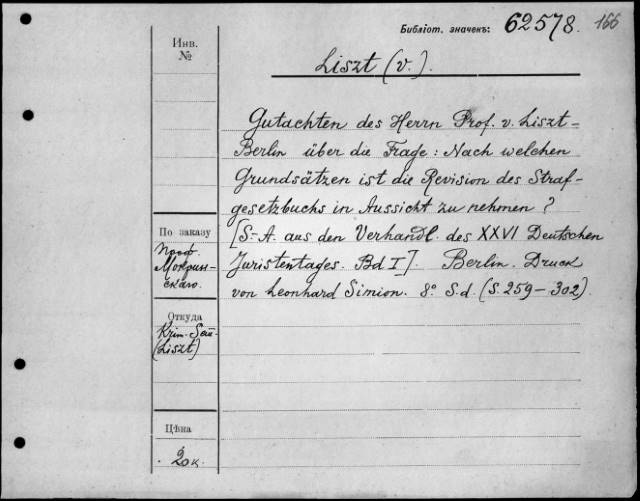 Библіот. значекъ: 62578. 166
Инв.
№
Liszt (v.).
Gutachten des Herrn Prof. v. Liszt-
Berlin über die Frage: Nach welchen
Grundsätzen ist die Revision des Straf-
gesetzbuchs in Aussicht zu nehmen?
[S.-A. aus den Verhandl. des XXVI Deutschen
Juristentages. Bd I]. Berlin. Druck
von Leonhard Simion. 8º S.d. (S. 259-302).
По заказу
Проф.
Мокрин-
скаго.
Откуда
Krim.
(Liszt)
Цѣна
20к.